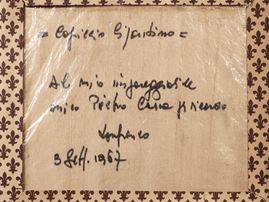 = Capriccio Giardino =
Al mio impareggiabile
amico Pietro
Lonfranco
3 Sett. 1967